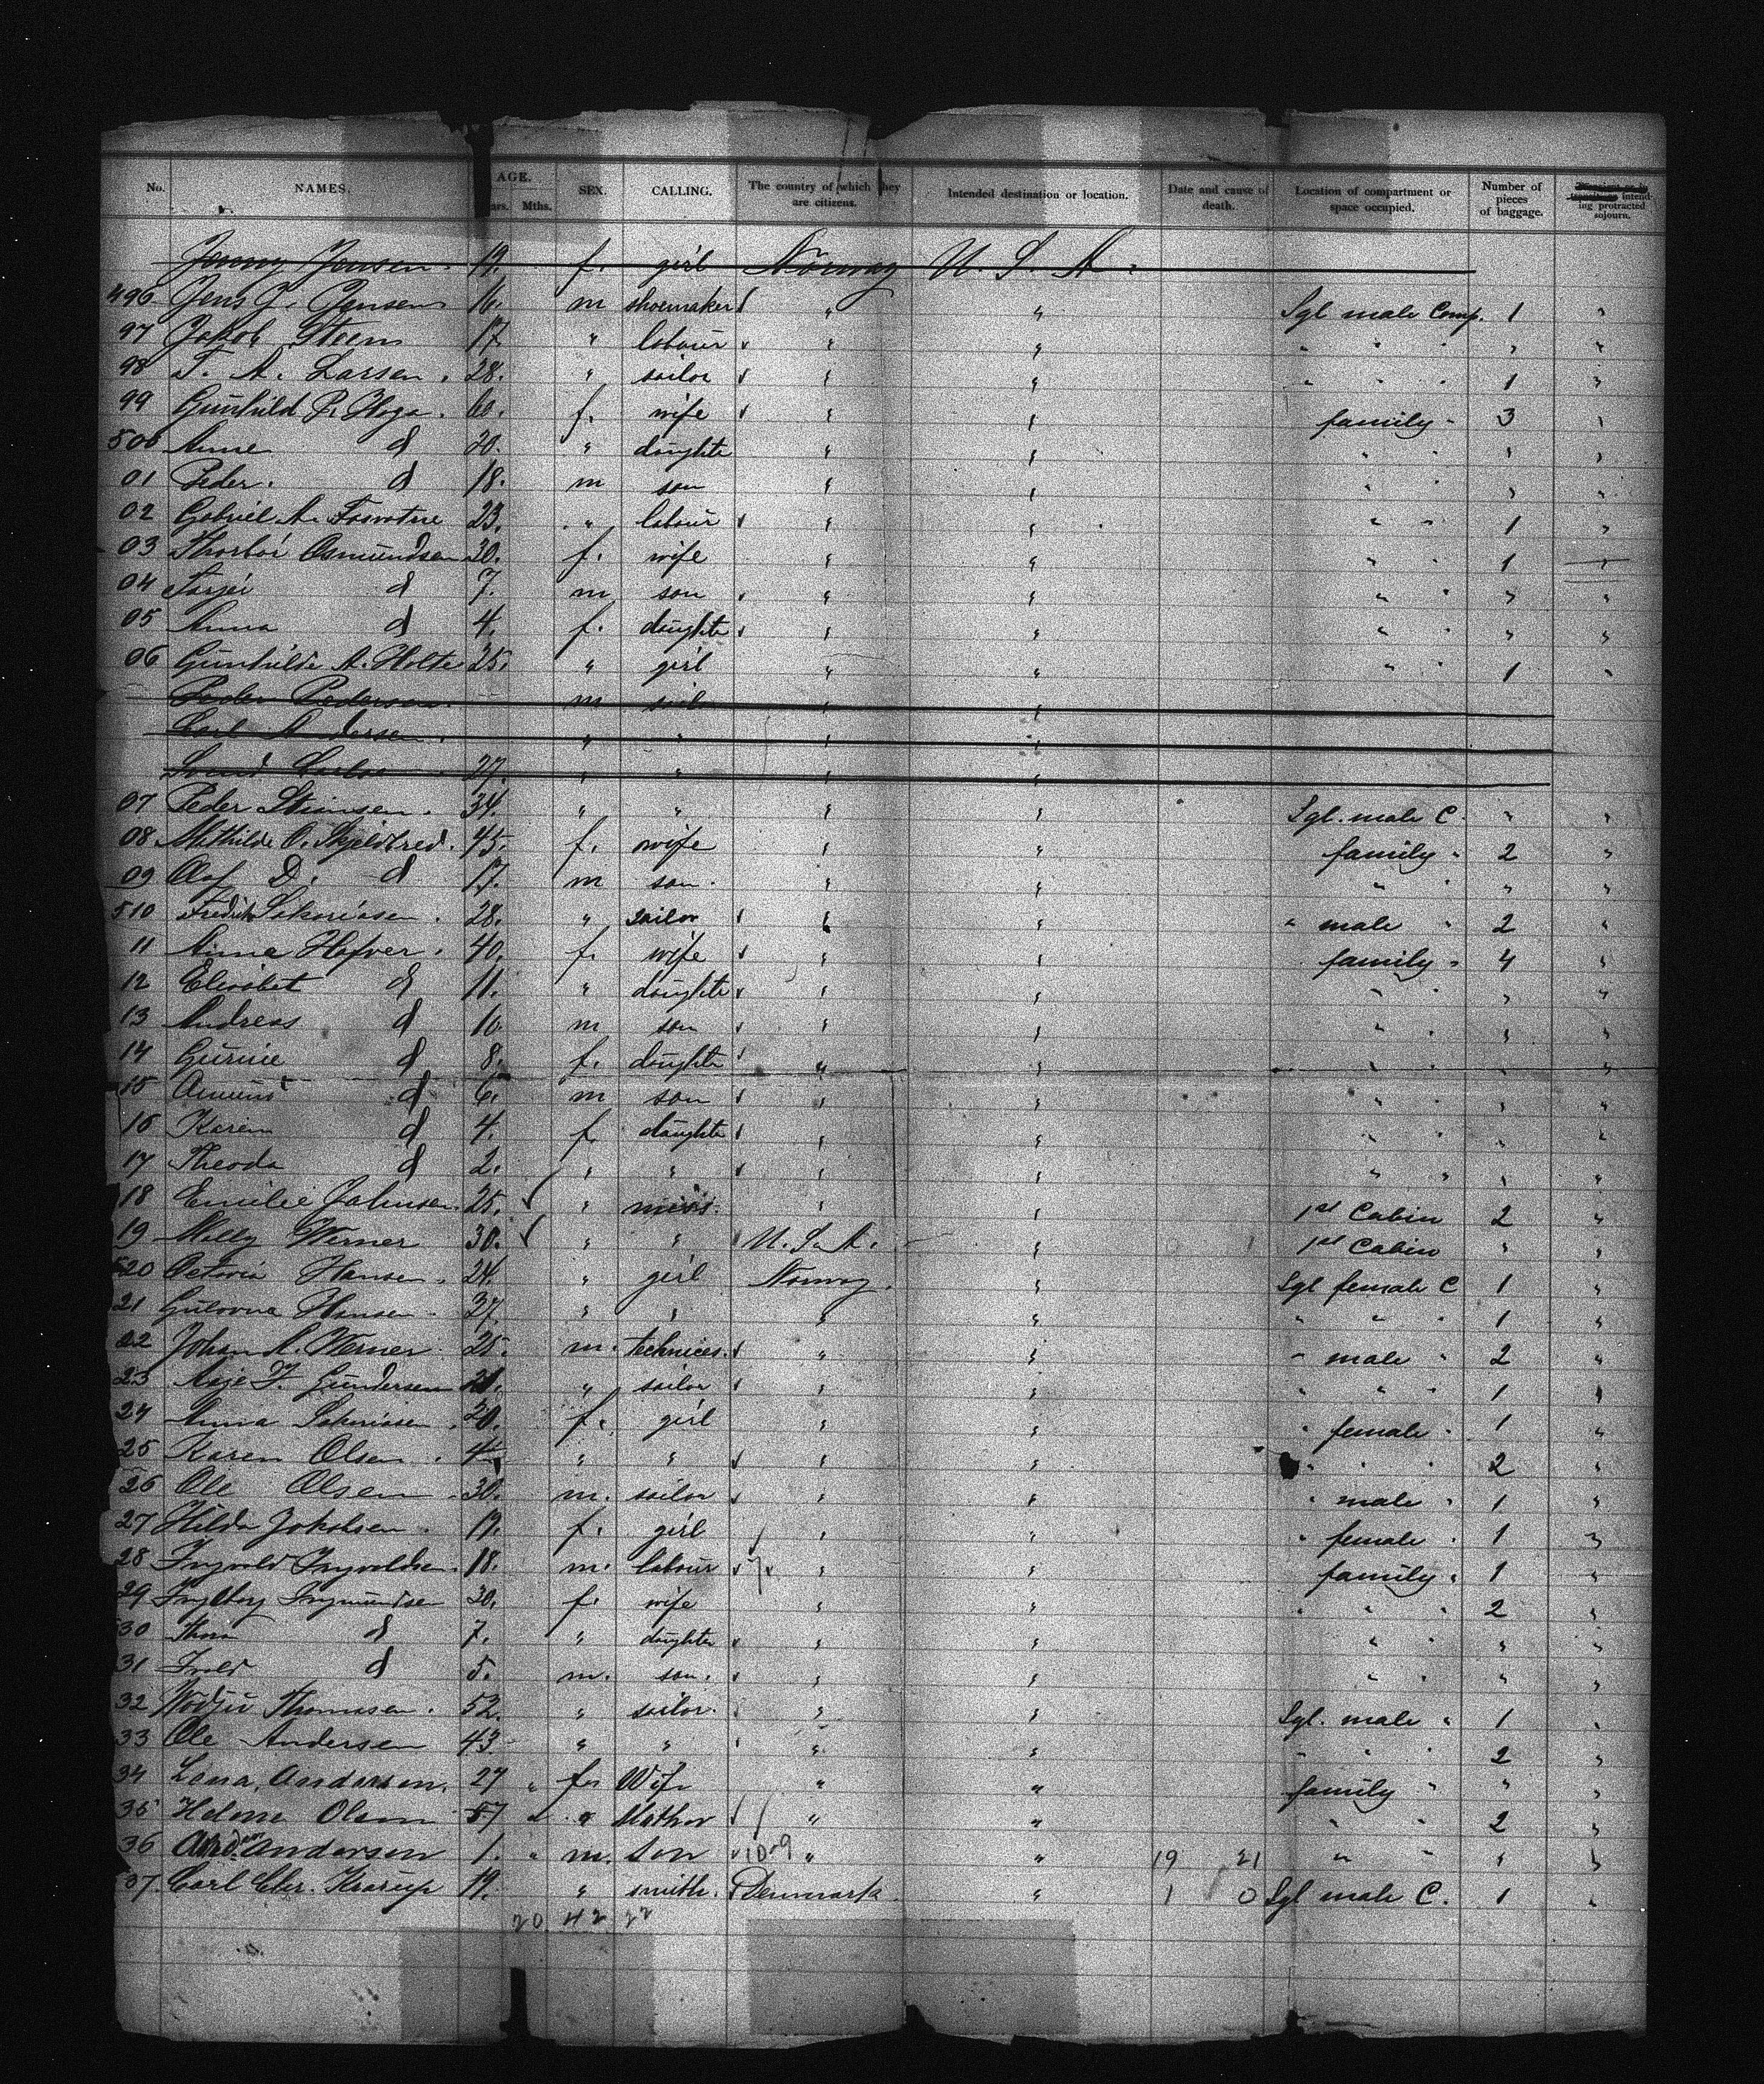 No. NAMES. AGE. ars. Mths. SEX. CALLING. The country of which they are citizens. Intended destination or location. Date and cause of death. Location of compartment or space occupied. Number of pieces of baggage. intending protracted sojourn.
Jenny Jensen. 19. f. girl Norway U. S. A.
496 Jens J. Jensen 16. m shoemaker " " Sgl male Comp. 1 "
97 Jakob Steen 17. " labour " " " " " " "
98 T. A. Larsen. 28. " sailor " " " " " 1 "
99 Gunhild P. Haga. 60. f. wife " " family " 3 "
500 Anne d 20. " daughte " " " " " "
01 Peder. d 18. m son " " " " " "
02 Gabriel A. 23. " labour " " " " 1 "
03 Osmundsen 30. f. wife " " " " 1
04 Tarjei d 7. m son " " " " " "
05 Anna d 4. f. daughte " " " " " "
06 Gunhilde A. Holte 25. " girl " " " " 1 "
Peder Pedersen. m sailor " "
Carl Andersen. " " " "
27. " " " "
07 Peder Stimsen. 34. " " " " Sgl. male C. " "
08 Mathilde O. Skjeldbred. 45. f. wife " " family " 2 "
09 D. d 17. m son. " " " " " "
510 Fredrik Sakariasen. 28. " sailor " " " male " 2 "
11 Anna 40. f. wife " " family " 4 "
12 Elisabet d 11. " daughte " " " " " "
13 Andreas d 10. m son " " " " " "
14 d 8. f. daughte " " " " " "
15 d 6. m son " " " " " "
16 Karen d 4. f daughte " " " " " "
17 Theoda d 2. " " " " " " " "
18 Emilie 25. " " " 1st Cabin 2 "
19 Werner 30. " " U. S. A. " 1st Cabin " "
520 Octavia Hansen. 24. " girl Norway. " Sgl female C 1 "
21 Hansen. 37. " " " " " " " 1 "
22 Johan A. Werner. 25. m. " " " male " 2 "
23 Gundersen 21. " sailor " " " " " 1 "
24 Anna Sakariasen. 20. f. girl " " " female " 1 "
25 Karen Olsen. " " " " " " " 2 "
26 Ole Olsen 30. m. sailor " " " male " 1 "
27 Hilda Jakobsen. 19. f. girl " " " female " 1 "
28 Ingvald Ingvaldsen. 18. m. labour " " family " 1 "
29 Ingeborg 30. f. wife " " " " " 2 "
30 Thora d 7. " daughter " " " " " "
31 d 5. m. son. " " " " " "
32 Thomasen. 52. " sailor. " " Sgl. male " 1 "
33 Ole Andersen 43. " " " " " " " 2 "
34 Lena Andersen. 27 " f " Wife " " family " " "
35 Helene Olsen 57 " " Mother " " " " 2 "
36 Andersen 1. " m. Son 10-9 " " 19 21 " " " "
37. Carl Chr. Krarup 19. " smith. Denmark " 1 0 Sgl male C. 1 "
20 42 22